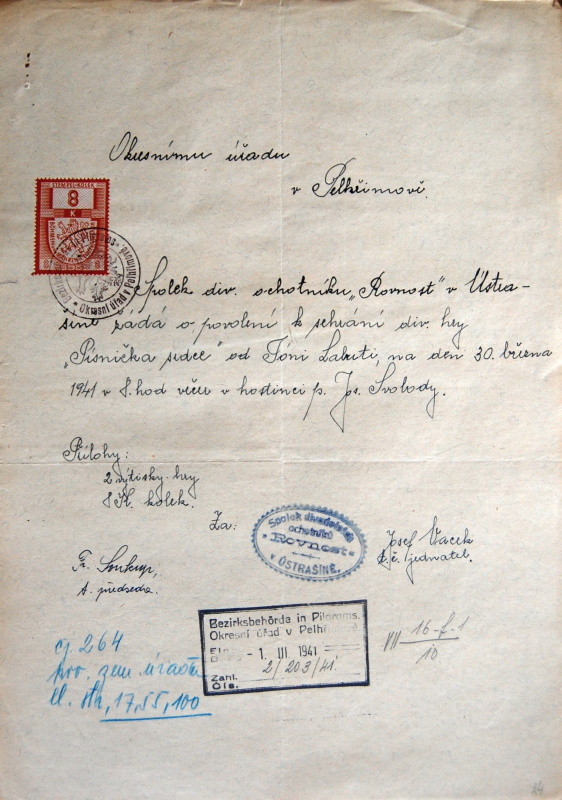 Okresnímu úřadu
v Pelhřimově.
STEMPEL-KOLEK
8
K
Okresní úřad v Pelhřimově
Spolek div. ochotníků „Rovnost" v Ústra-
šíně žádá o povolení k sehrání div. hry
„Písnička srdce" od Tóni Labuti, na den 30. března
1941 v 8. hod večer v hostinci p. Jos. Svobody.
Přílohy:
2 výtisky hry
8 K. kolek.
Za:
Spolek divadelních
ochotníků
„Rovnost"
v ÚSTRAŠÍNĚ.
Fr. Soukup,
t. předseda.
Josef Vacek
t. č. jednatel.
Bezirksbehörde in Pilgrams.
Okresní úřad v Pelhř
- 1. III. 1941
2/203/41.
Zahl.
Čís.
VII 16-f-1
10
čj 264
pro. zem. úřadu
17, 55, 100
24